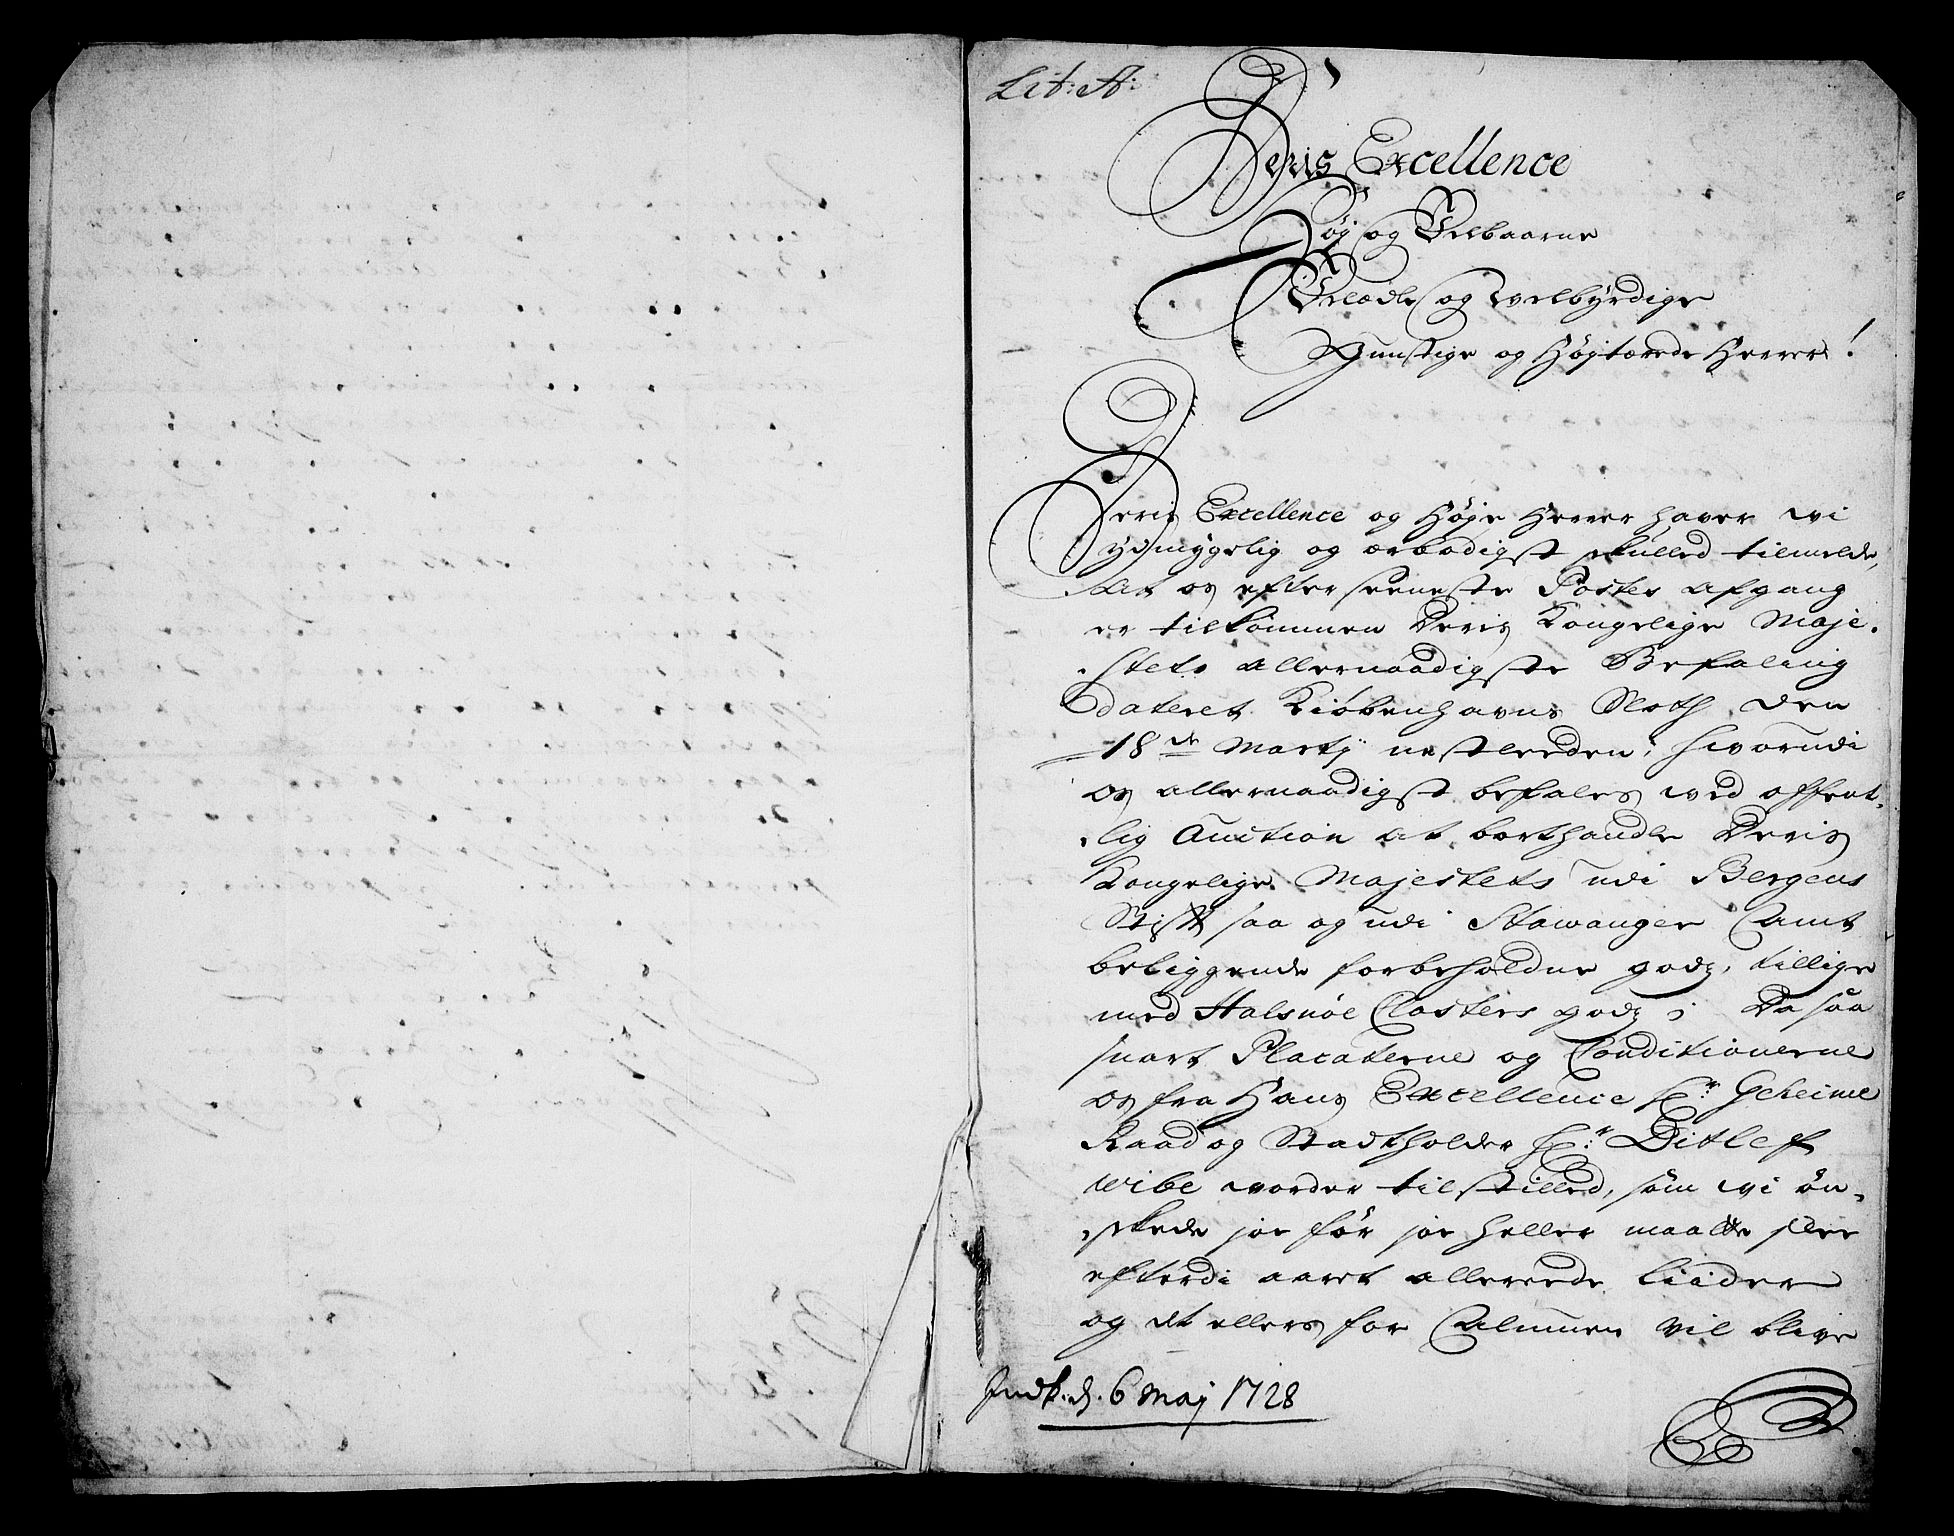 Lit: A:
Deris Excellence
Høj og Velbaarne
Velædle og Welbyrdige
Gunstige og Højtærede Herrer!
Deris Excellence og Høje Herrer haver wi
ydmygelig og ærbødigst skulled tilmelde,
at os efter seeneste Postes afgang
er tilkommen Deris Kongelige Maje-
stets allernaadigste Befaling
dateret Kiøbenhavns Sloth den
18de Martij nestleeden, hvorudi
os allernaadigst befales ved offent-
lig Auction at borthandle Deris
Kongelige Majestets udi Bergens
Stift saa og udi Stawanger Amt
beliggende forbeholdne godz, tillige
med Halsnøe Closters godz; Da saa
snart Placaterne og Conditionerne
os fra Hans Excellence Hr: Geheime
Raad og Stadtholder Hr: Ditlef
Wibe vorder tilstilled, som wi øn-
skede joe før joe heller maatte skee
efterdi aaret allereede liider
og det ellers for Almuen vil blive
Indk. d. 6 Maj 1728